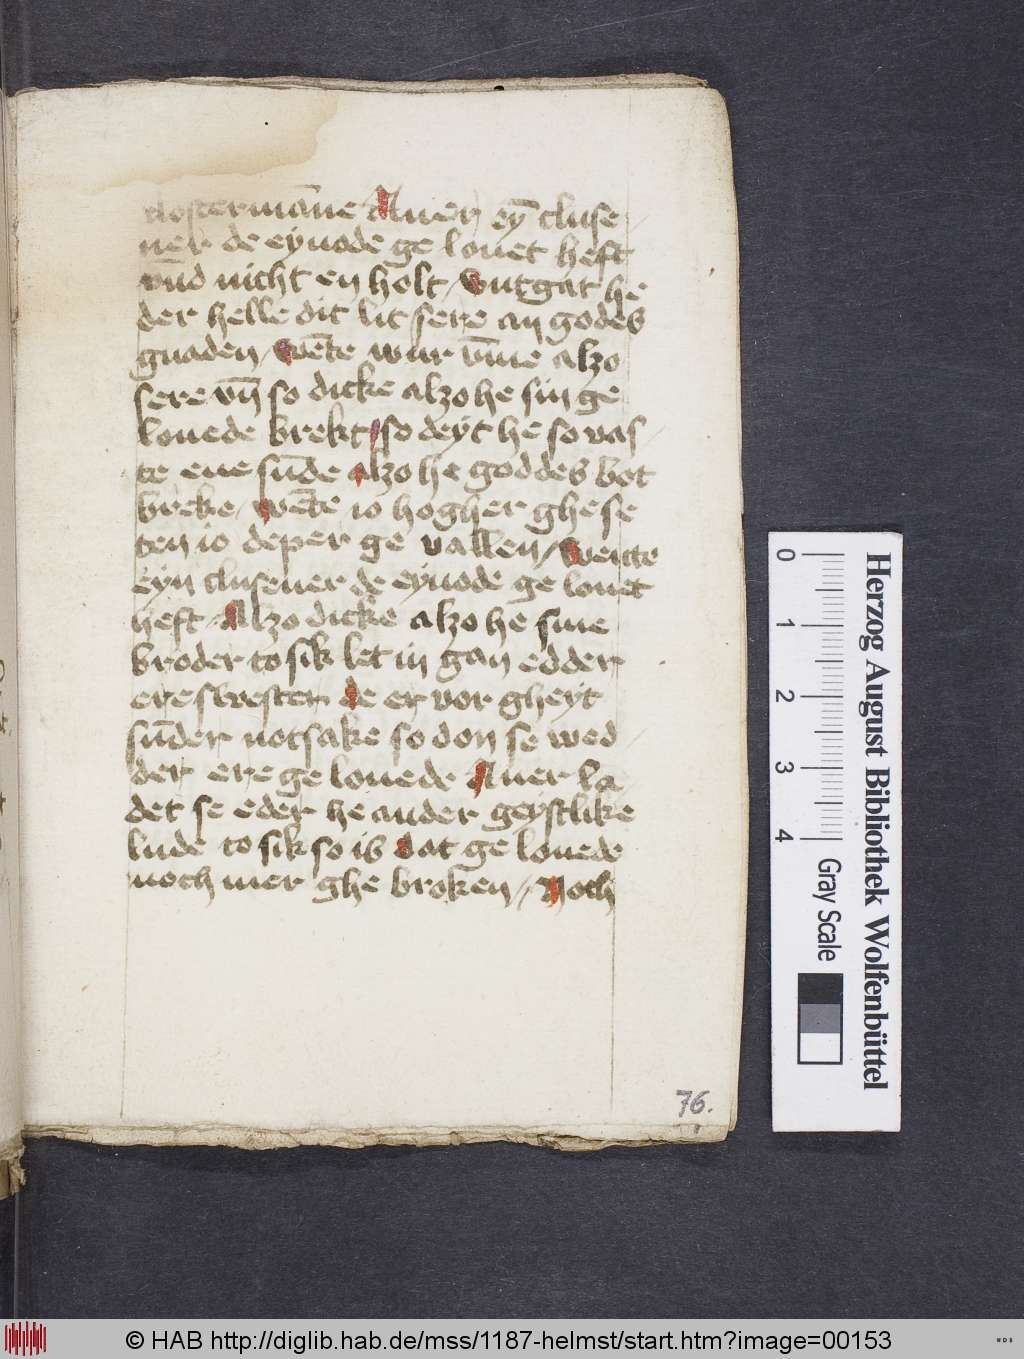 closterman̄e Auer ey̅ cluse
ner de eynode ge louet heft
vn̄d nicht en holt / vntgat he
der helle dit lit sere an godes
gnaden / wēte wur vm̄e alzo
sere vn̄ so dicke alzo he sin ge
louede brekt / so deyt he so vas
te ene sūde alzo he goddes bot
breke / wēte io hogher ghese
ten io deper ge vallen / wente
eyn clusener de eynode ge louet
heft / Alzo dicke alzo he sine
broder to sik let in gan edder
ere swester de er vor gheyt
sūder notsake so don se wed
der ere ge louede Auer la
det se eder he ander geystlike
lude to sik so is dat ge louede
noch mer ghe broken // Noch
76.
Herzog August Bibliothek Wolfenbüttel
0 1 2 3 4 Gray Scale
© HAB http://diglib.hab.de/mss/1187-helmst/start.htm?image=00153
WDB